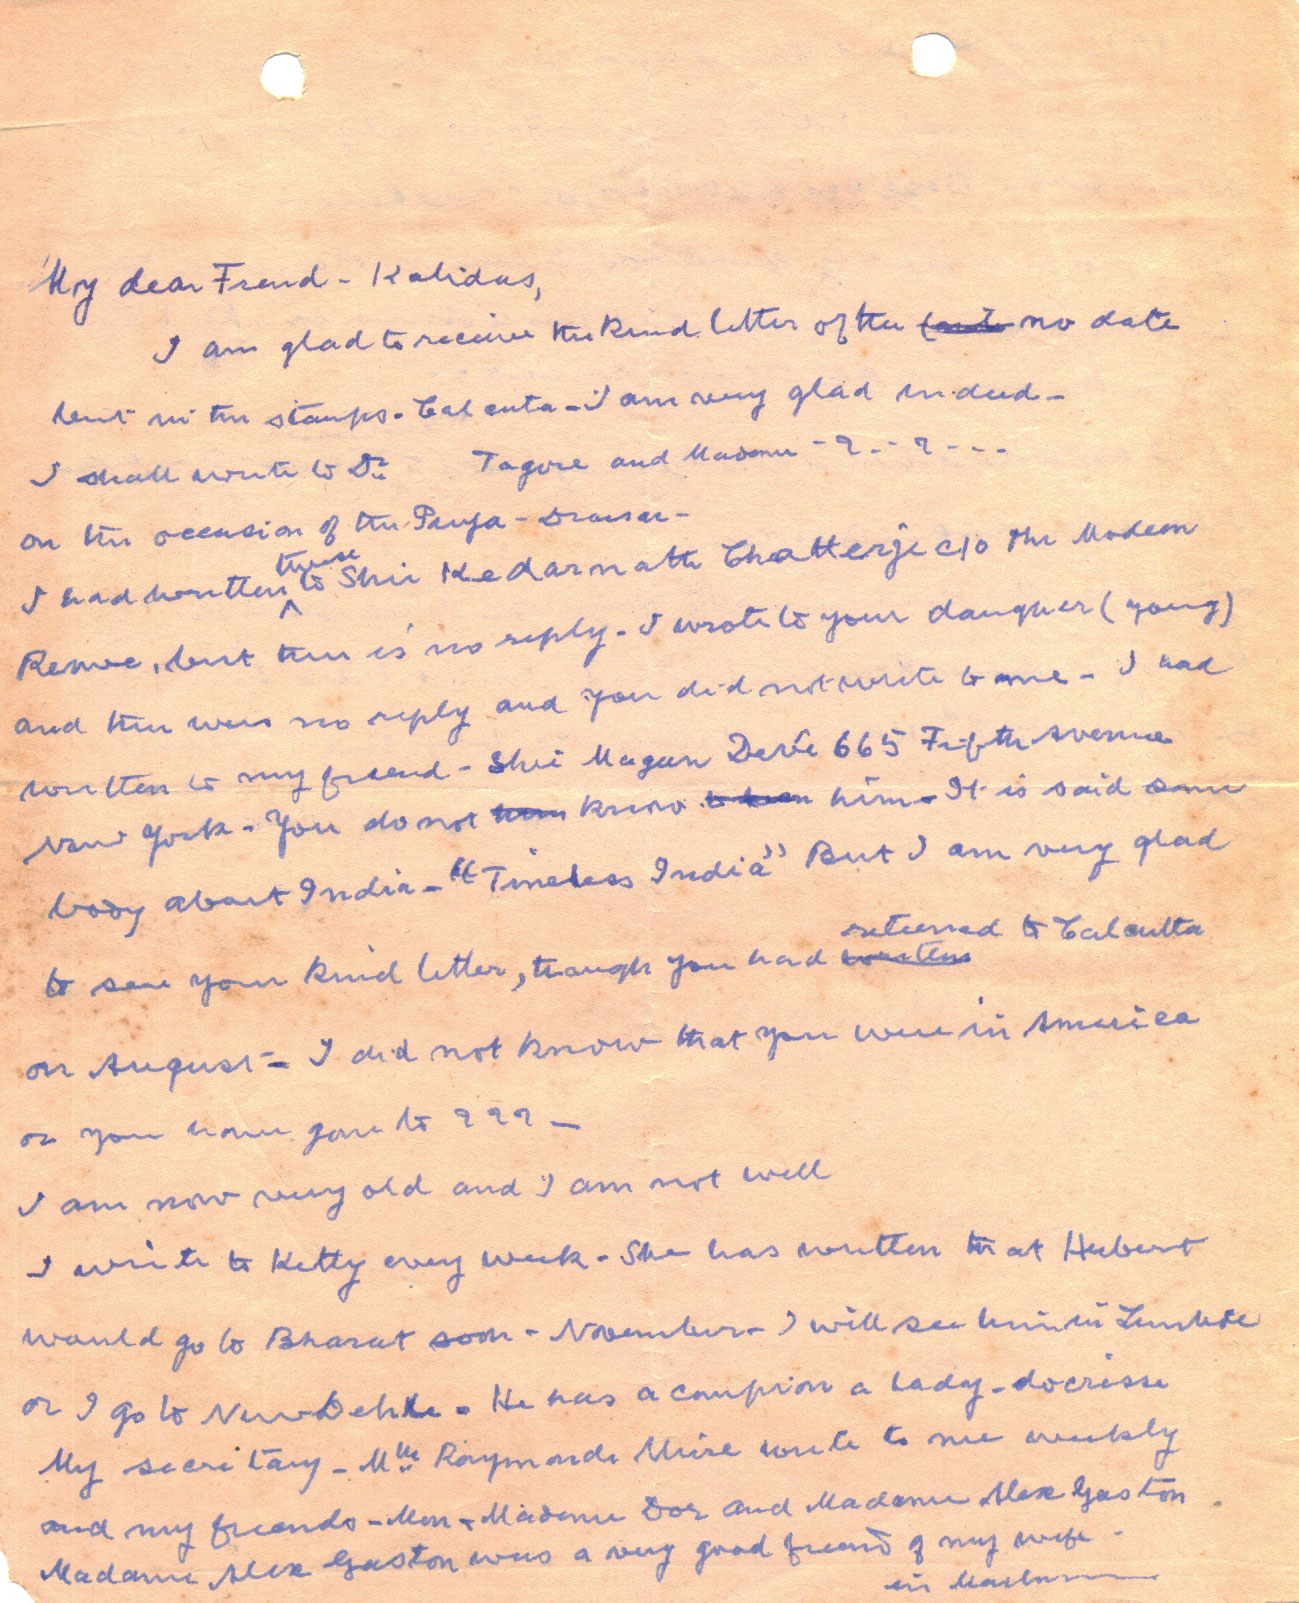 My dear Frend - Kalidas,
I am glad to receive the kind letter of the no date
but in the stamps - Calcuta - I am very glad indeed -
I shall write to Dr Tagore and Madame - ? - - ? - - -
on the occasion of the Puja -
I had written these to Shri Kedarnath Chatterje c/o The Modern
Revue, but ther is no reply - I wrote to your daugher (young)
and ther was no reply and you did not write to me - I had
written to my friend - Shri Magan Davé 665 Fifth Avenue
New York - You do not know him - It is said some
body about India - "Timeless India" But I am very glad
to see your kind letter, though you had returned to Calcutta
on August - I did not know that you were in America
or you have gone to ? ? ? -
I am now very old and I am not well
I write to Ketty every week - She has written that Hubert
would go to Bharat soon - November - I will see him in
or I go to New Dehle - He has a a lady -
My secretary - Mlle Raymonde write to me weekly
and my friends - Mon - Madame Dor and Madame Alex Gaston
Madame Alex Gaston was a very good freend of my wife -
in